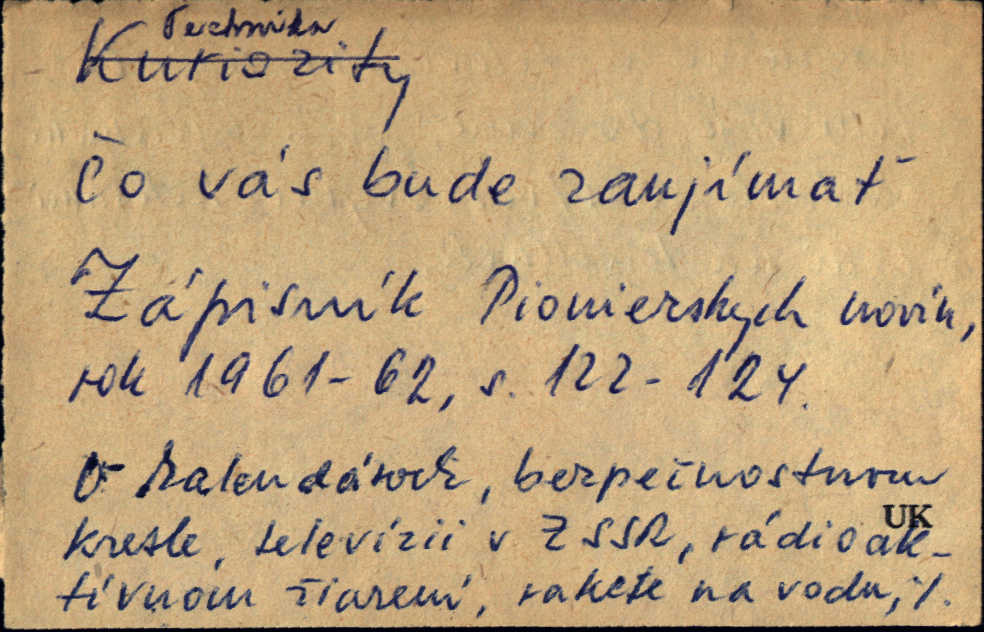 Technika
Kuriozity
Čo vás bude zaujímať
Zápisník Pionierskych novín,
rok 1961-62, s. 122-124.
O kalendároch, bezpečnostnom
kresle, televízii v ZSSR, rádioak-
tívnom žiarení, rakete na vodu, ./.
UK